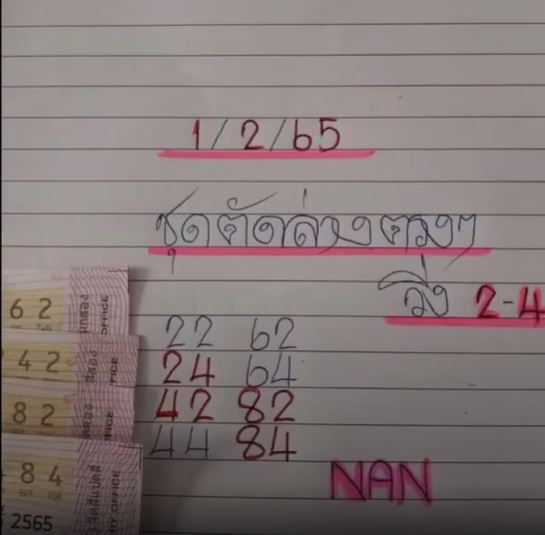 1/2/65
ชุดตัดล่างตรงๆ
วิ่ง 2-4
22 62
24 64
42 82
44 84
NAN
6 2
4 2
8 2
8 4
2565
OFFICE